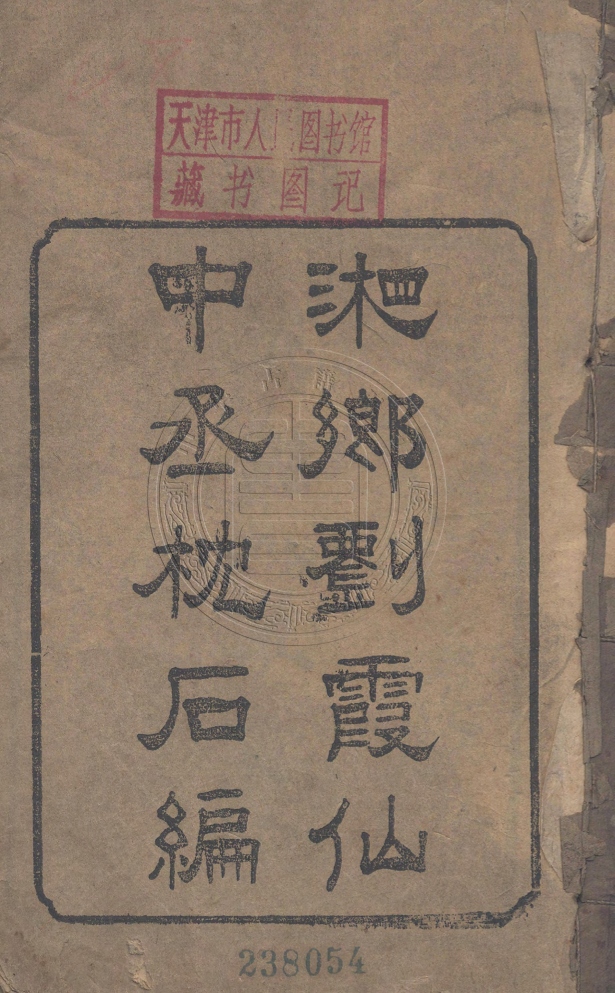 天津市人民图书馆
藏书图记
湘鄉劉霞仙
中丞枕石編
238054